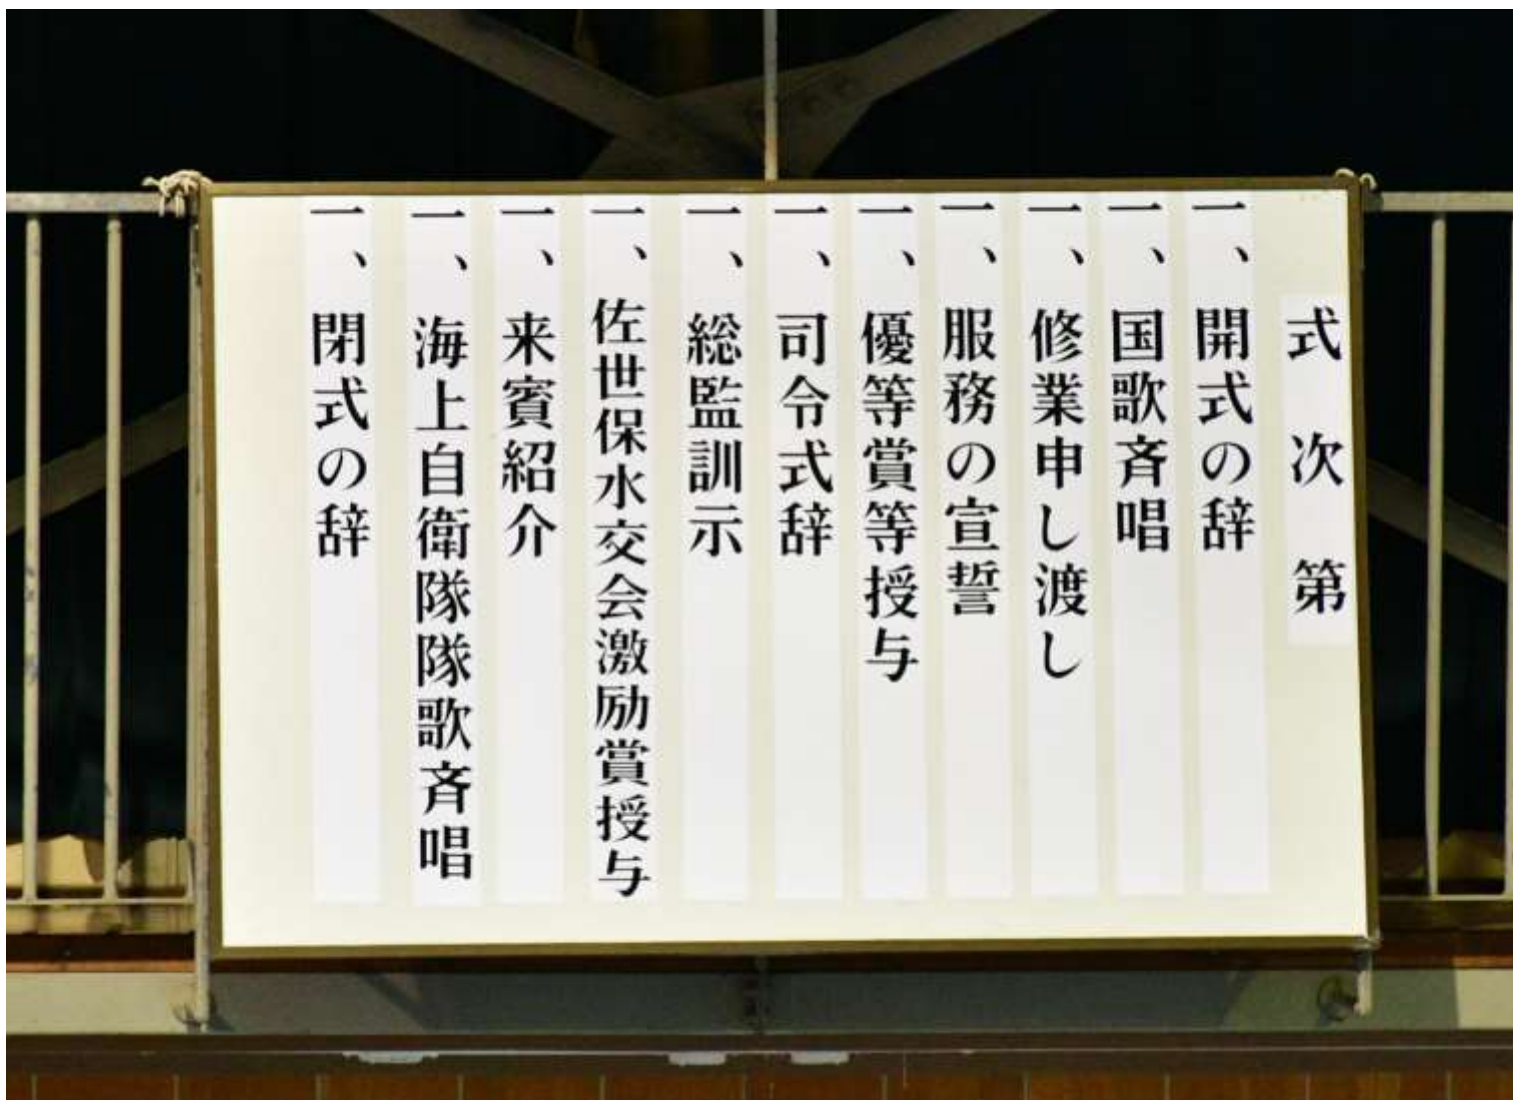 式次第
一、開式の辞
一、国歌斉唱
一、修業申し渡し
一、服務の宣誓
一、優等賞等授与
一、司令式辞
一、総監訓示
一、佐世保水交会激励賞授与
一、来賓紹介
一、海上自衛隊隊歌斉唱
一、閉式の辞